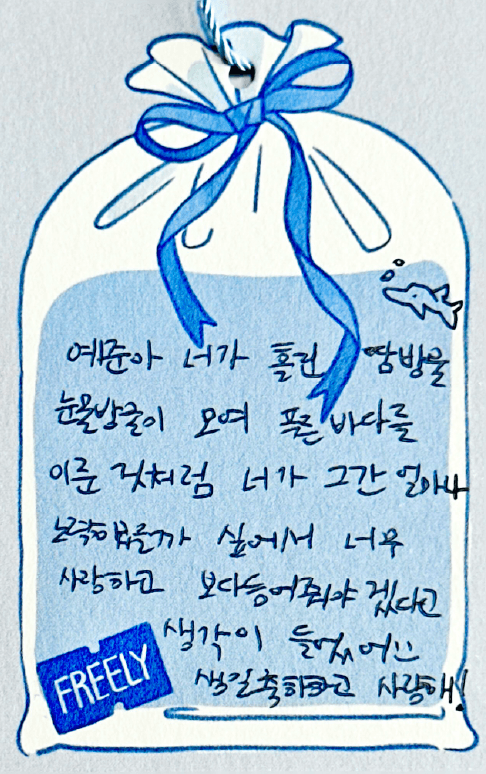 예준아 너가 흘린 땀방울
눈물방울이 모여 푸른 바다를
이룬 것처럼 너가 그간 얼마나
노력했을까 싶어서 너무
사랑하고 보다듬어줘야겠다고
생각이 들었어
생일축하하고 사랑해!
FREELY